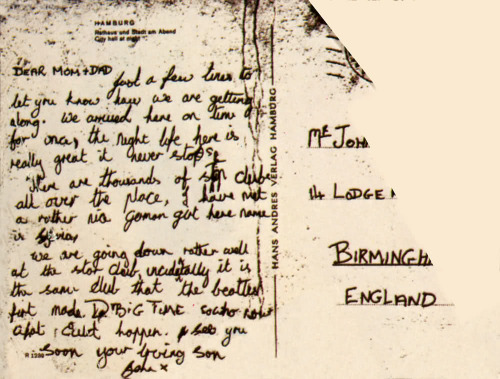 HAMBURG
Rathaus und Stadt am Abend
City hall at night
DEAR MOM + DAD
Just a few lines to
let you know how we are getting
along. We arrived here on time
for once, the night life here is
really great it never stops,
there are thousands of club
all over the place, I have met
a rather nice german girl here name
is
we are going down rather well
at the star club, incidentally it is
the same club that the beatles
first made BIG TIME so who now
happen. see you
soon your loving son
John x
R 1290
HANS ANDRES VERLAG HAMBURG
Mr JOH
14 LODGE
BIRMINGH
ENGLAND